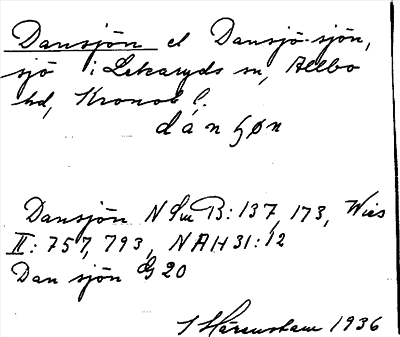 Dansjön el Dansjö-sjön,
sjö i Lekaryds sn, Allbo
hd, Kronob l.
dánʃøn
Dansjön N Sm B: 137, 173, Wies
II: 757, 793, NAH 31: 12
Dan sjön G 20
1936